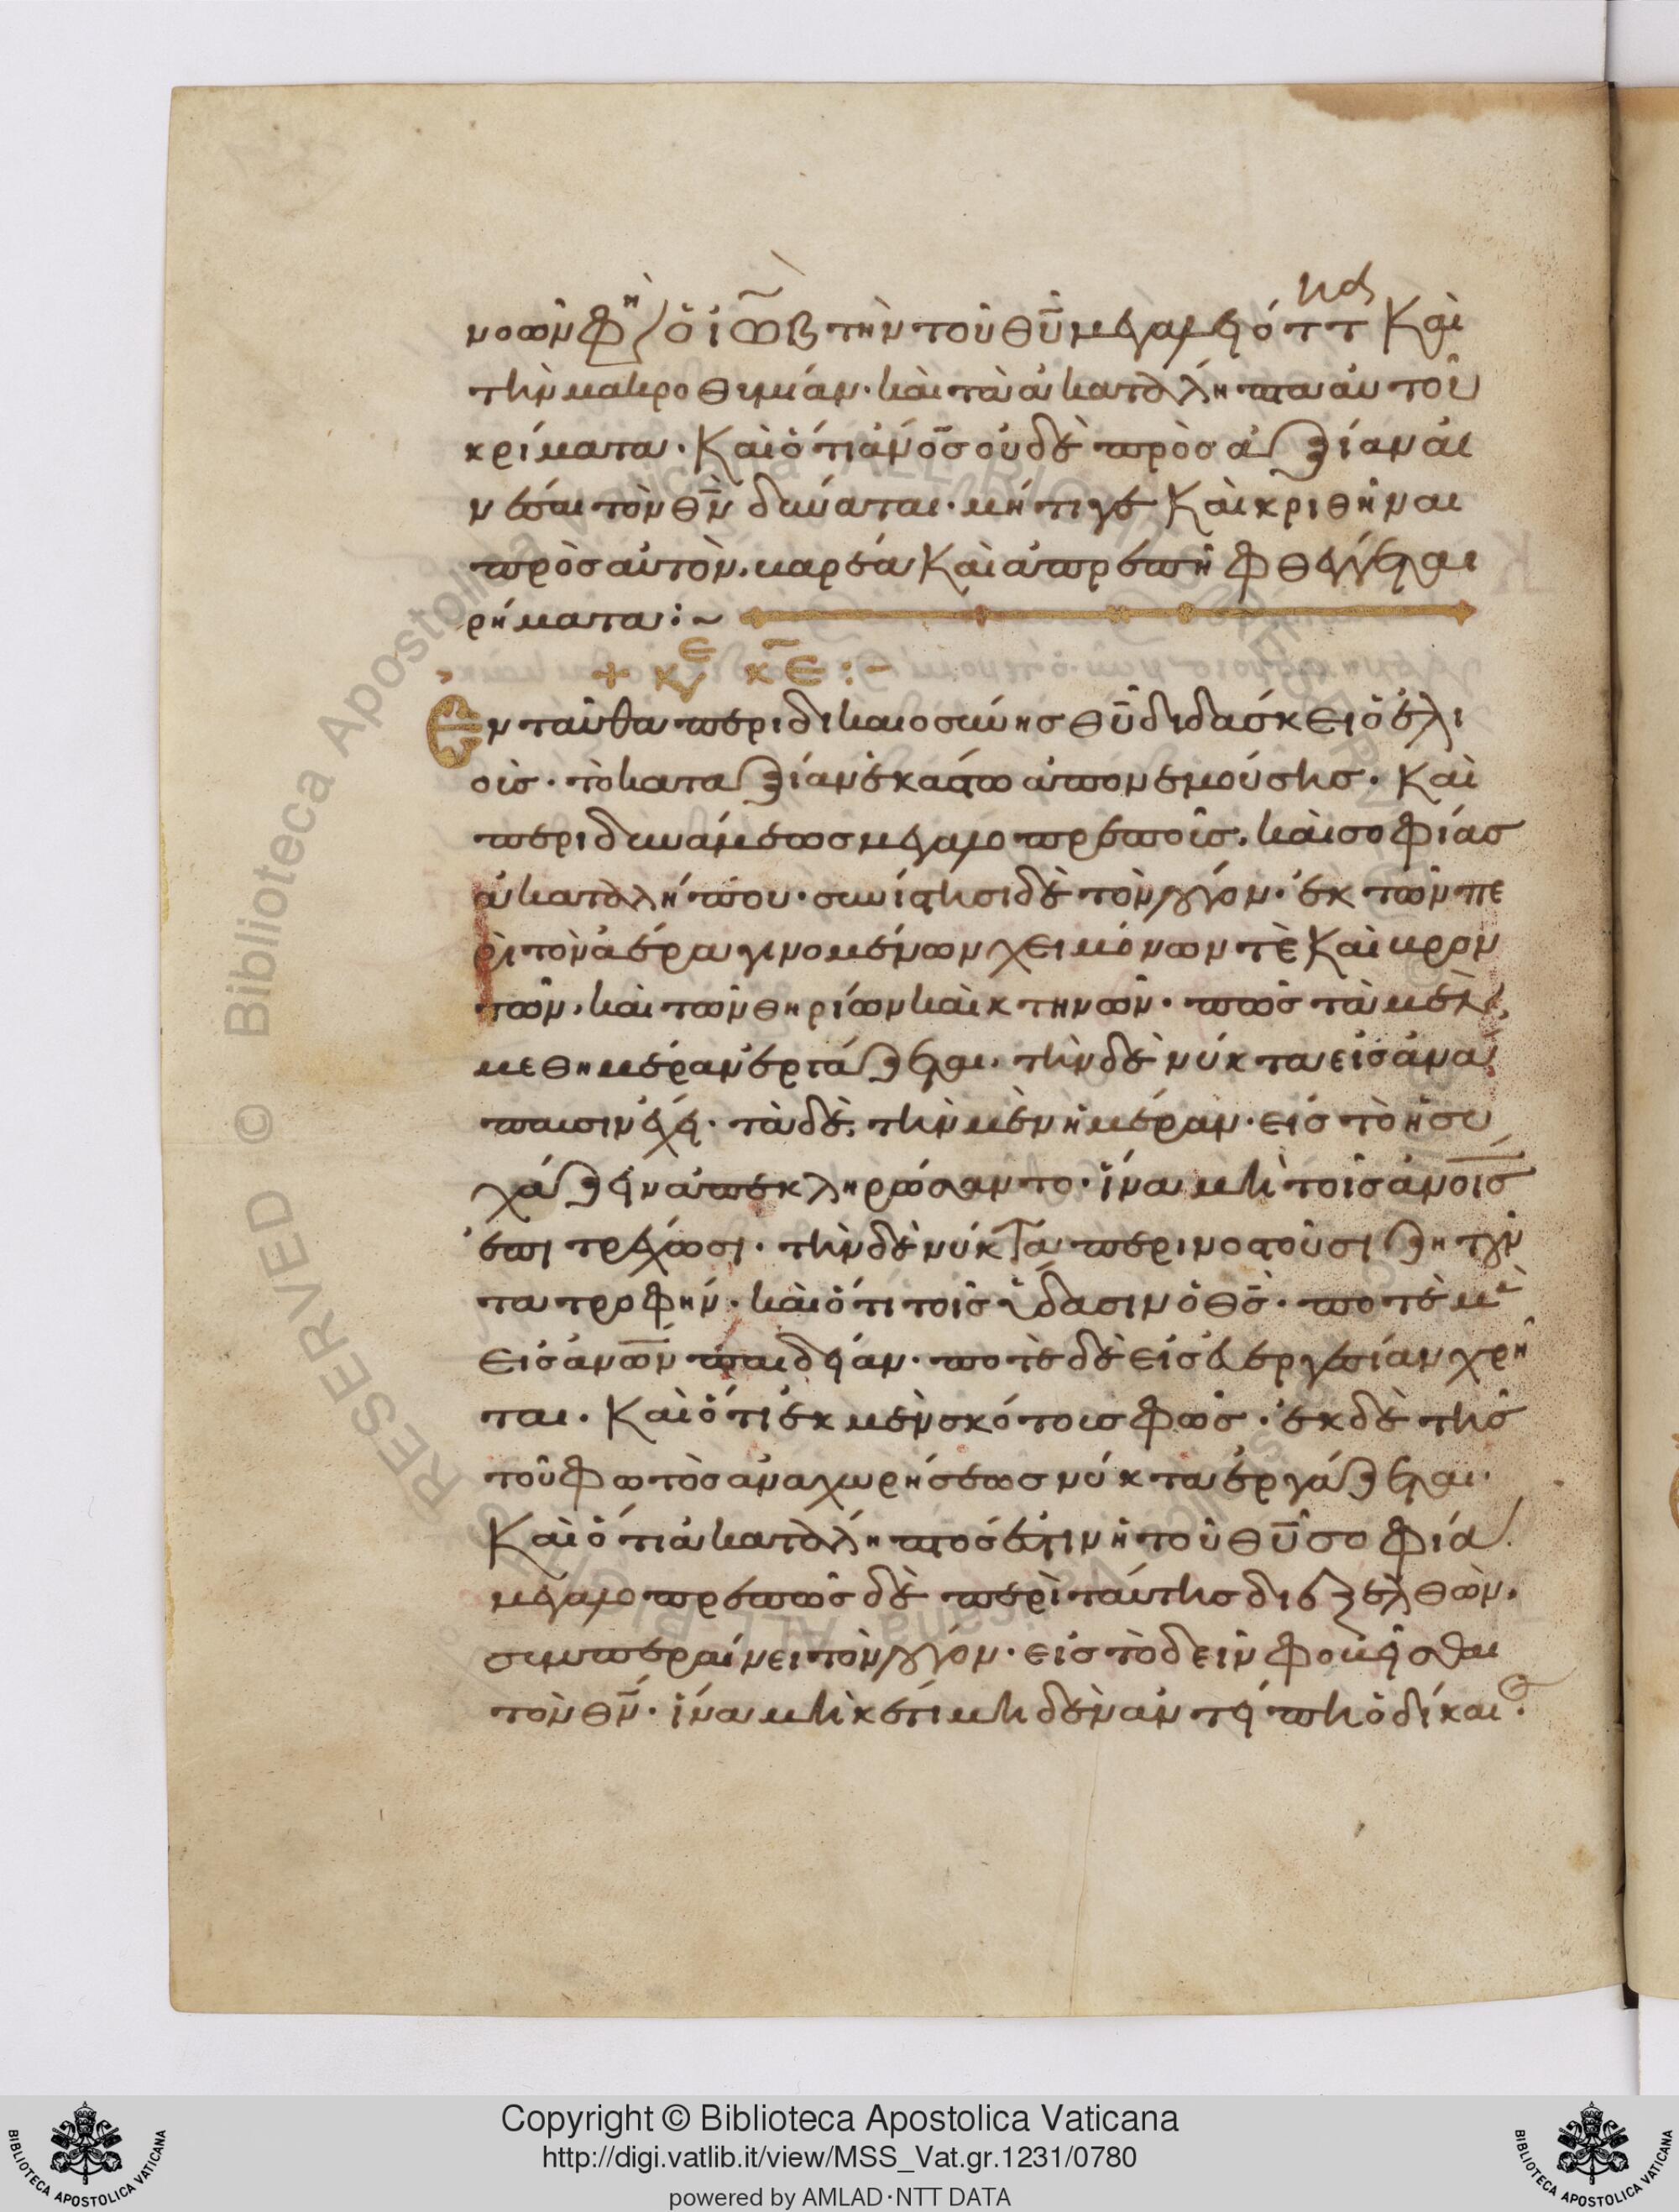 νοῶν φη(σὶν) ὁ ἰὼβ τὴν τοῦ θῦ μεγαλειότητα καὶ
τὴν μακροθυμίαν· καὶ τὰ ἀκατάληπτα αὐτοῦ
κρίματα· καὶ ὅτι ἄνος οὐδὲ πρὸς ἀξίαν αἰ
νέσαι τὸν θν δύναται· μήτιγε καὶ κριθῆναι
πρὸς αὐτὸν· μαρσα καὶ ἀπρεπῆ φθέγγεσθαι
ρήματα:~
+ κε κε:-
Ἐνταῦθα περὶ δικαιοσύνης θῦ διδάσκει ὁ ἐλι
οῦς· τὸ κατ' ἀξίαν ἑκάστω ἀπονεμούσης· καὶ
περὶ δυνάμεως μεγαλοπρεποῦς· καὶ σοφίας
ἀκαταλήπτου· συνίστησι δὲ τὸν λόγον· ἐκ τῶν πε
ρὶ τὸν ἀέρα γινομένων χειμόνων τὲ καὶ βρον
τῶν· καὶ τῶν θηρίων καὶ κτηνῶν· πῶς τὰ μὲν
μεθημέραν ἐργάζεσθαι· τὴν δὲ νύκτα εἰς ἀνά
παυσιν ἔχει· τὰ δὲ, τὴν μὲν ἡμέραν· εἰς τὸ ἡσυ
χάζειν ἀπεκληρώσαντο· ἵνα μὴ τοῖς ἀνοις
ἐπιτρέχωσι· τὴν δὲ νύκτα περινοστοῦσι ζητοῦν
τα τροφήν· καὶ ὅτι τοῖς ὕδασιν ὁ θς· ποτὲ μὲ
εἰς ἀνων παιδείαν· ποτὲ δὲ εἰς εὐεργεσίαν χρῆ
ται· καὶ ὅτι ἐκ μὲν σκότους φῶς· ἐκ δὲ τῆς
τοῦ φωτὸς ἀναχωρήσεως νύκτα ἐργάζεσθαι·
καὶ ὅτι ἀκατάληπτος ἐστιν ἡ τοῦ θῦ σοφία·
μεγαλοπρεπῶς δὲ περὶ ταύτης διεξελθὼν·
συμπεραίνει τὸν λόγον· εἰς τὸ δεῖν φοβεῖσθαι
τὸν θν· ἵνα μηκέτι μηδὲν ἀντείπη ὁ δίκαιο·
Copyright © Biblioteca Apostolica Vaticana
http://digi.vatlib.it/view/MSS_Vat.gr.1231/0780
powered by AMLAD·NTT DATA